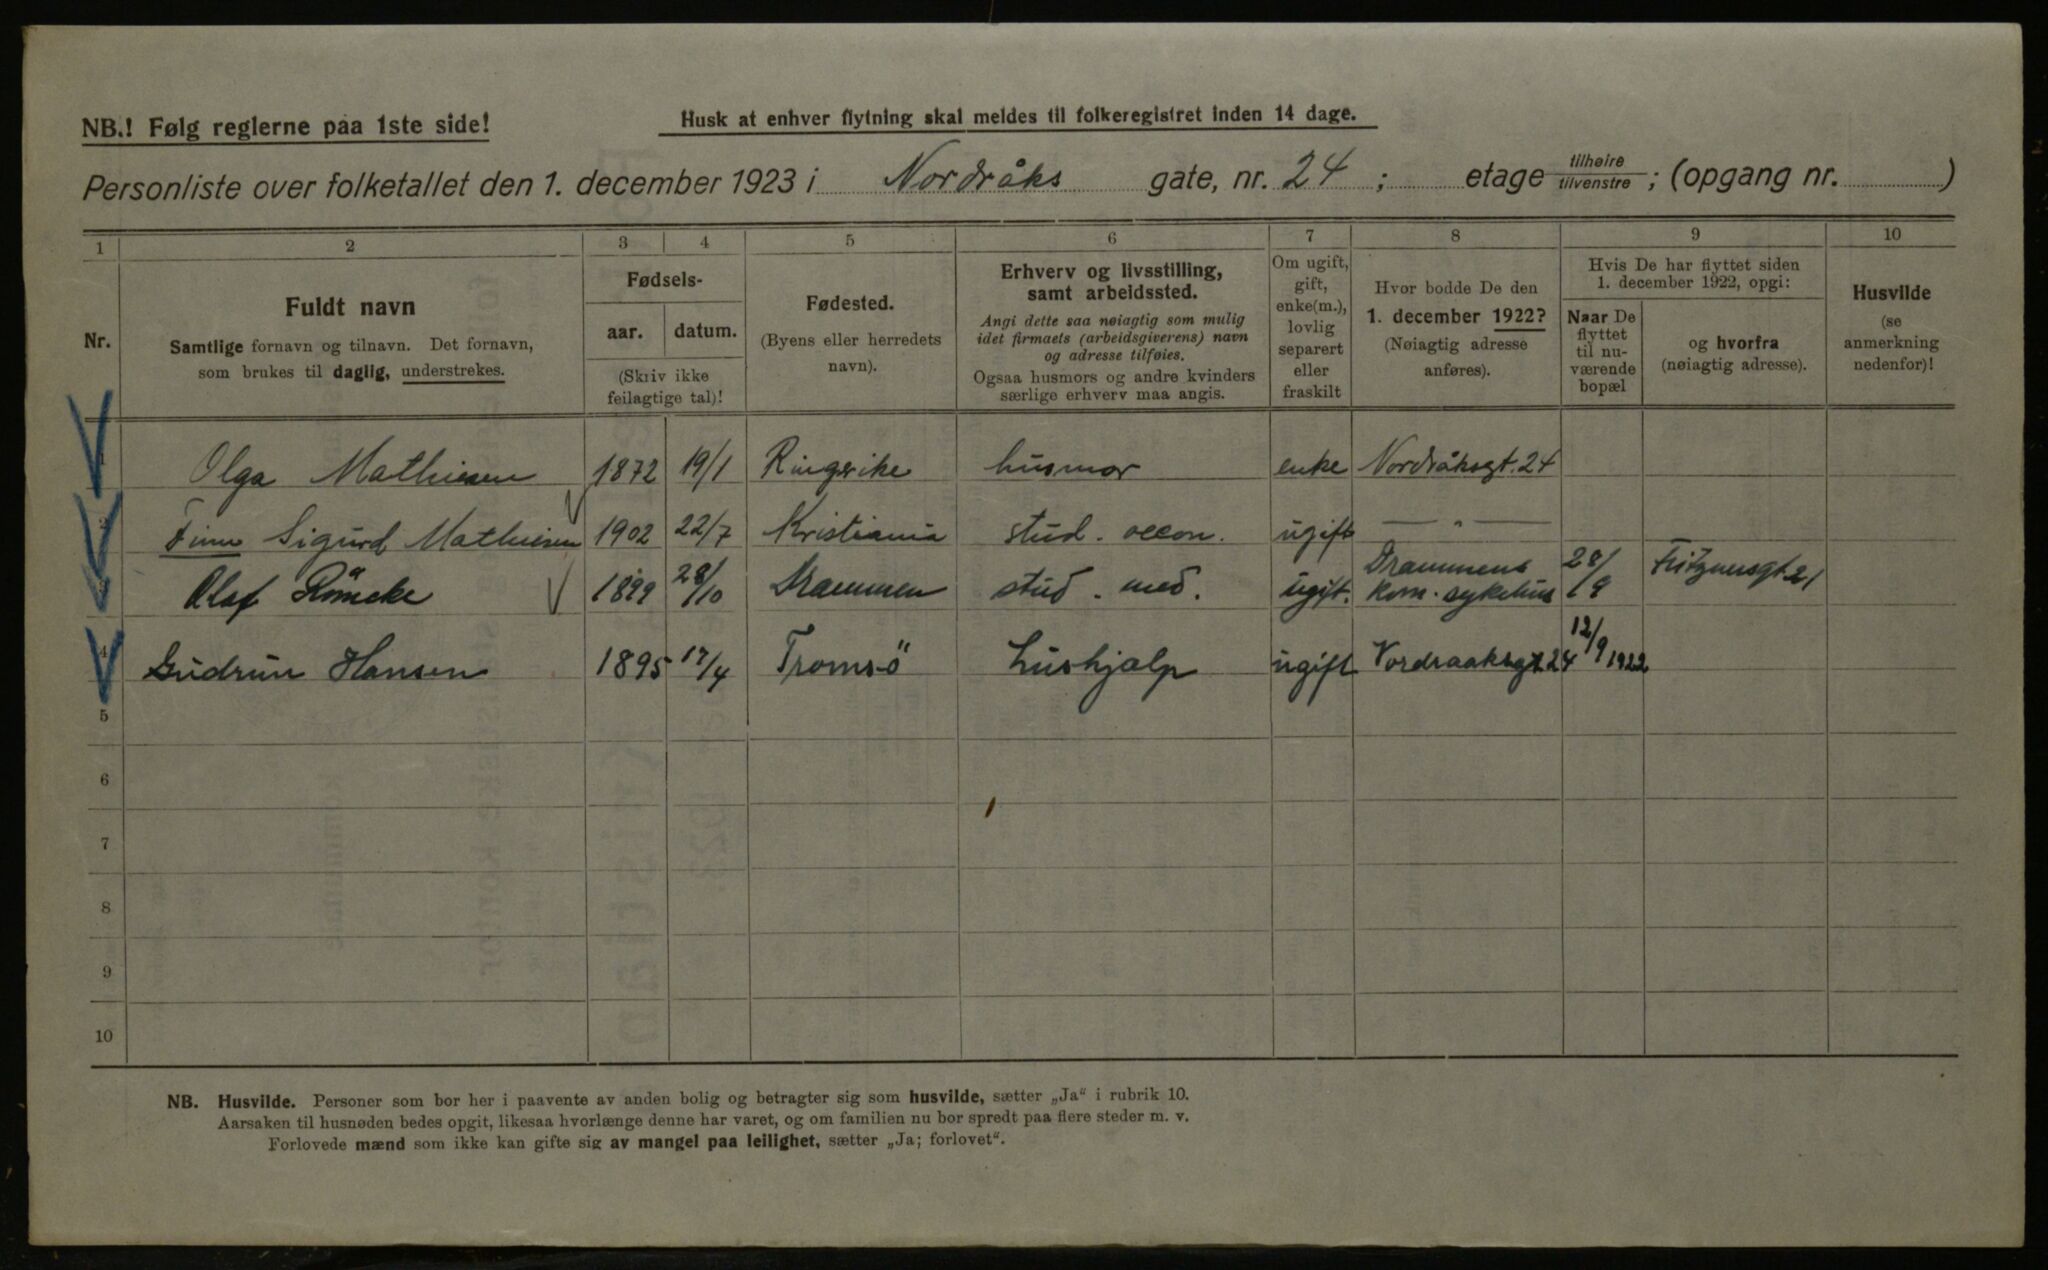 NB.! Følg reglerne paa 1ste side!
Husk at enhver flytning skal meldes til folkeregistret inden 14 dage.
Personliste over folketallet den 1. december 1923 i Nordråks gate, nr. 24 ; etage tilhøire tilvenstre ; (opgang nr. )
1 2 3 4 5 6 7 8 9 10
Nr.
Fuldt navn
Samtlige fornavn og tilnavn. Det fornavn,
som brukes til daglig, understrekes.
Fødsels-
aar. datum.
(Skriv ikke
feilagtige tal)!
Fødested.
(Byens eller herredets
navn).
Erhverv og livsstilling,
samt arbeidssted.
Angi dette saa nøiagtig som mulig
idet firmaets (arbeidsgiverens) navn
og adresse tilføies.
Ogsaa husmors og andre kvinders
særlige erhverv maa angis.
Om ugift,
gift,
enke(m.),
lovlig
separert
eller
fraskilt
Hvor bodde De den
1. december 1922?
(Nøiagtig adresse
anføres).
Hvis De har flyttet siden
1. december 1922, opgi:
Naar De
flyttet
til nu-
værende
bopæl
og hvorfra
(nøiagtig adresse).
Husvilde
(se
anmerkning
nedenfor)!
1 Olga Mathiesen 1872 19/1 Ringerike husmor enke Nordråksgt. 24
2 Finn Sigurd Mathiesen 1902 22/7 Kristiania stud. oecon. ugift — " —
3 Olaf Römcke 1899 28/10 Drammen stud. med. ugift. Drammens kom. sykehus 28/9 Fritznersgt 21
4 Gudrun Hansen 1895 17/4 Tromsö hushjælp ugift Nordraaksgt 24 12/9 1922
5
6
7
8
9
10
NB. Husvilde. Personer som bor her i paavente av anden bolig og betragter sig som husvilde, sætter „Ja“ i rubrik 10.
Aarsaken til husnøden bedes opgit, likesaa hvorlænge denne har varet, og om familien nu bor spredt paa flere steder m. v.
Forlovede mænd som ikke kan gifte sig av mangel paa leilighet, sætter „Ja; forlovet“.